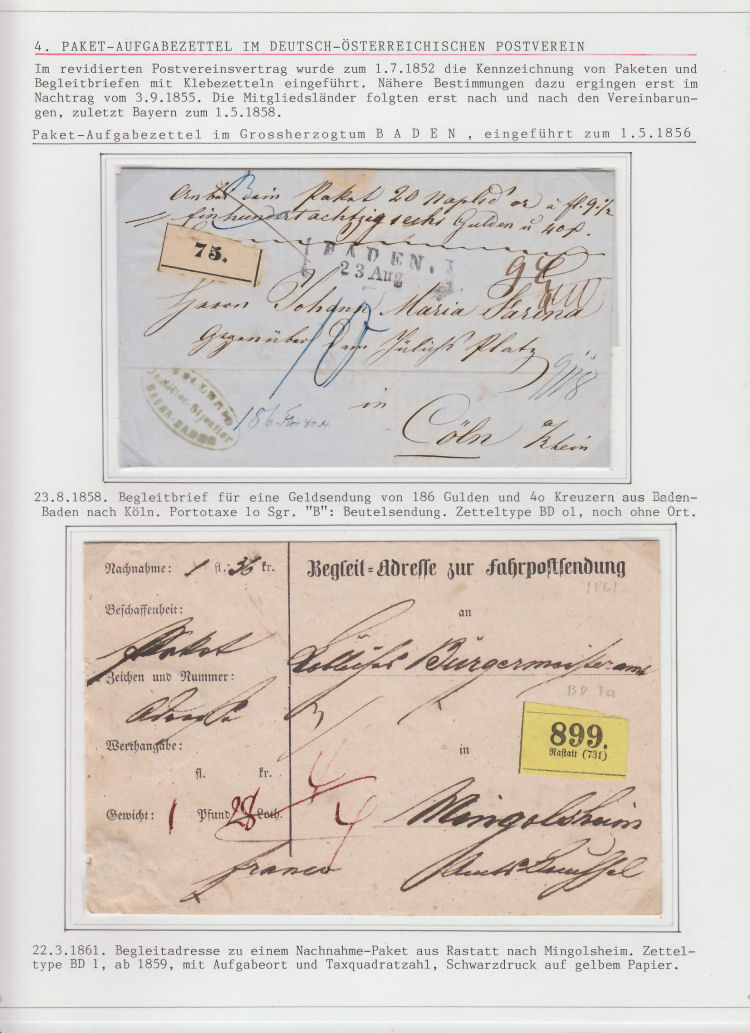 4. PAKET-AUFGABEZETTEL IM DEUTSCH-ÖSTERREICHISCHEN POSTVEREIN
Im revidierten Postvereinsvertrag wurde zum 1.7.1852 die Kennzeichnung von Paketen und
Begleitbriefen mit Klebezetteln eingeführt. Nähere Bestimmungen dazu ergingen erst im
Nachtrag vom 3.9.1855. Die Mitgliedsländer folgten erst nach und nach den Vereinbarun-
gen, zuletzt Bayern zum 1.5.1858.
Paket-Aufgabezettel im Grossherzogtum B A D E N , eingeführt zum 1.5.1856
Paket 20
Einhundertachtzigsechs Gulden u 40
75.
BADEN.
23 Aug
Herrn Johann Maria Farina
Gegenüber dem Jülichs Platz
10
186
BADEN-BADEN
in
Cöln a/Rhein
23.8.1858. Begleitbrief für eine Geldsendung von 186 Gulden und 4o Kreuzern aus Baden-
Baden nach Köln. Portotaxe lo Sgr. "B": Beutelsendung. Zetteltype BD ol, noch ohne Ort.
Nachnahme: 1 fl. 36 kr.
Begleit=Adresse zur Fahrpostsendung
1861
an
Beschaffenheit:
Paket
Bürgermeisteramt
Zeichen und Nummer:
BD 1a
Adresse
899.
Rastatt (731)
Werthangabe:
in
fl. kr.
Gewicht: 1 Pfund 28 Loth.
Mingolsheim
franco
22.3.1861. Begleitadresse zu einem Nachnahme-Paket aus Rastatt nach Mingolsheim. Zettel-
type BD 1, ab 1859, mit Aufgabeort und Taxquadratzahl, Schwarzdruck auf gelbem Papier.